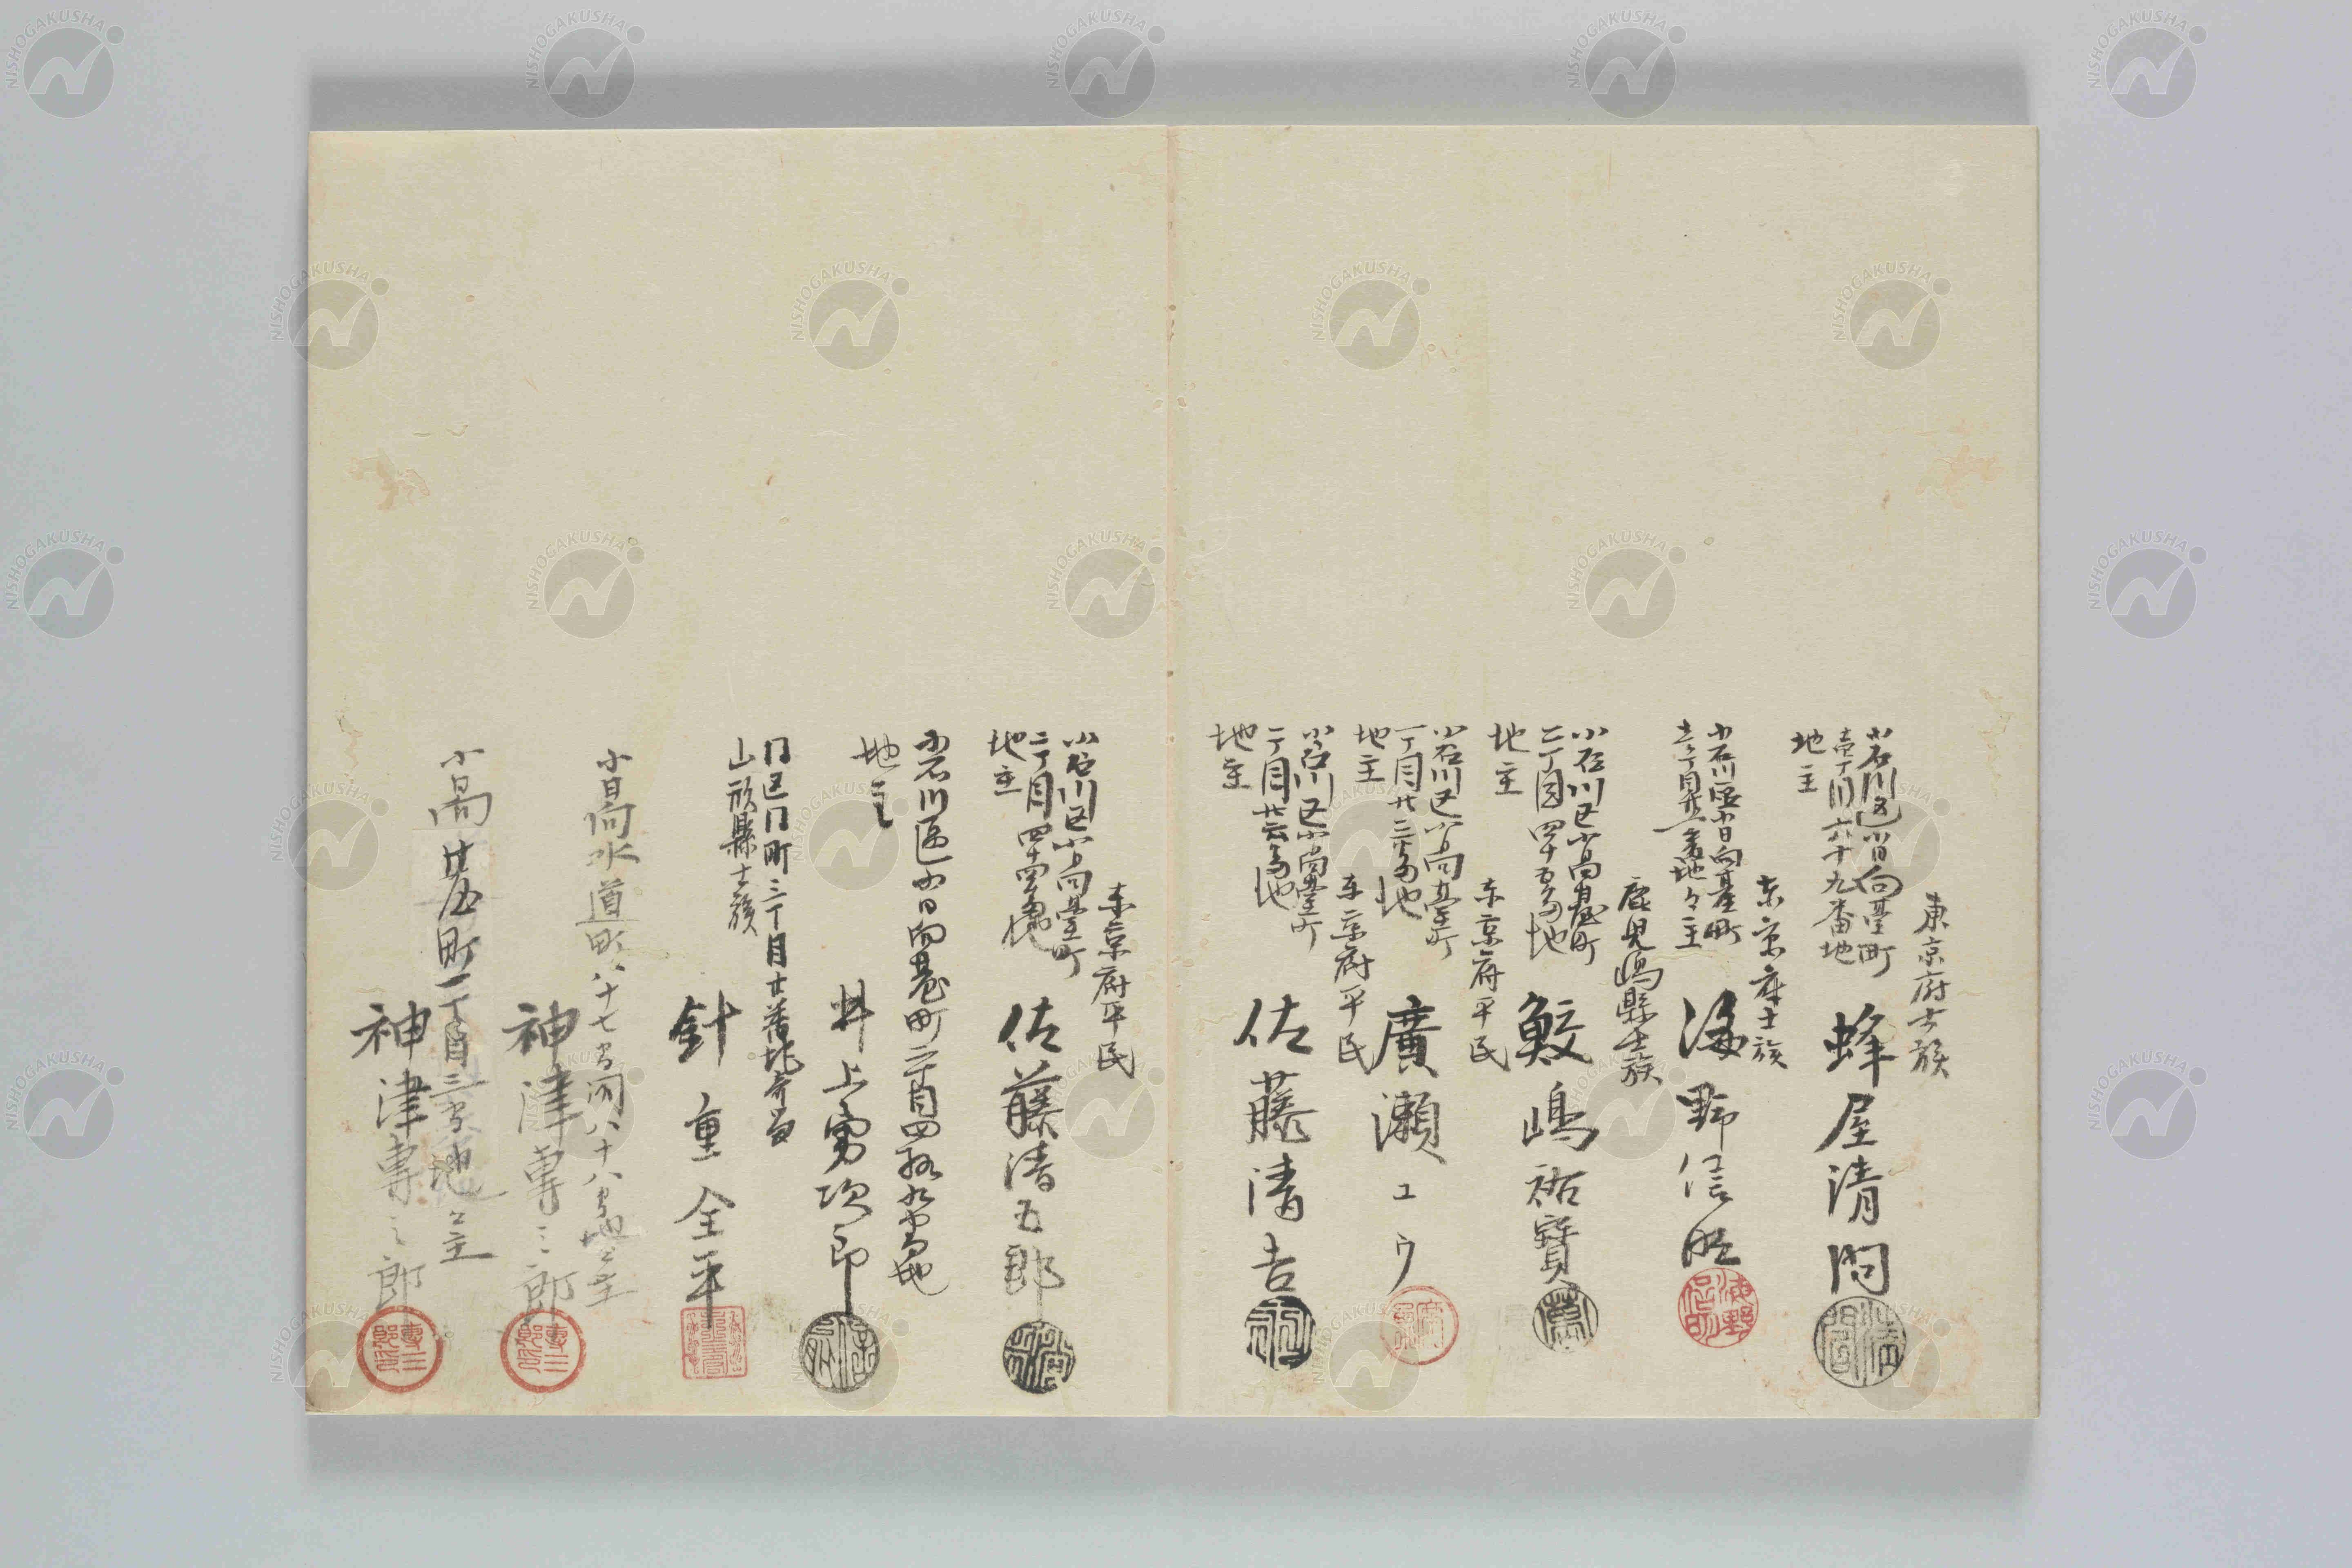 東京府士族
小石川区小日向臺町
壹丁目六十九番地
地主
蜂屋清問
東京府士族
小石川區小日向臺町
海野信
鹿児嶋縣士族
小石川区小日向臺町
二丁目四十五番地
地主
鮫嶋祐寶
東京府平民
小石川区小日向臺町
一丁目廿三番地
地主
廣瀬ユウ
東京府平民
小石川区小日向臺町
二丁目廿六番地
地主
佐藤清吉
東京府平民
小石川区小日向臺町
二丁目四十四番地
地主
佐藤清五郎
小石川區小日向臺町二丁目四拾九番地
地主
井上勇次郎
同区同町三丁目
山形縣士族
針重全平
小日向水道町八十七番同八十八番地々主
神津専三郎
小日向臺町一丁目三番地々主
神津専三郎
NISHOGAKUSHA